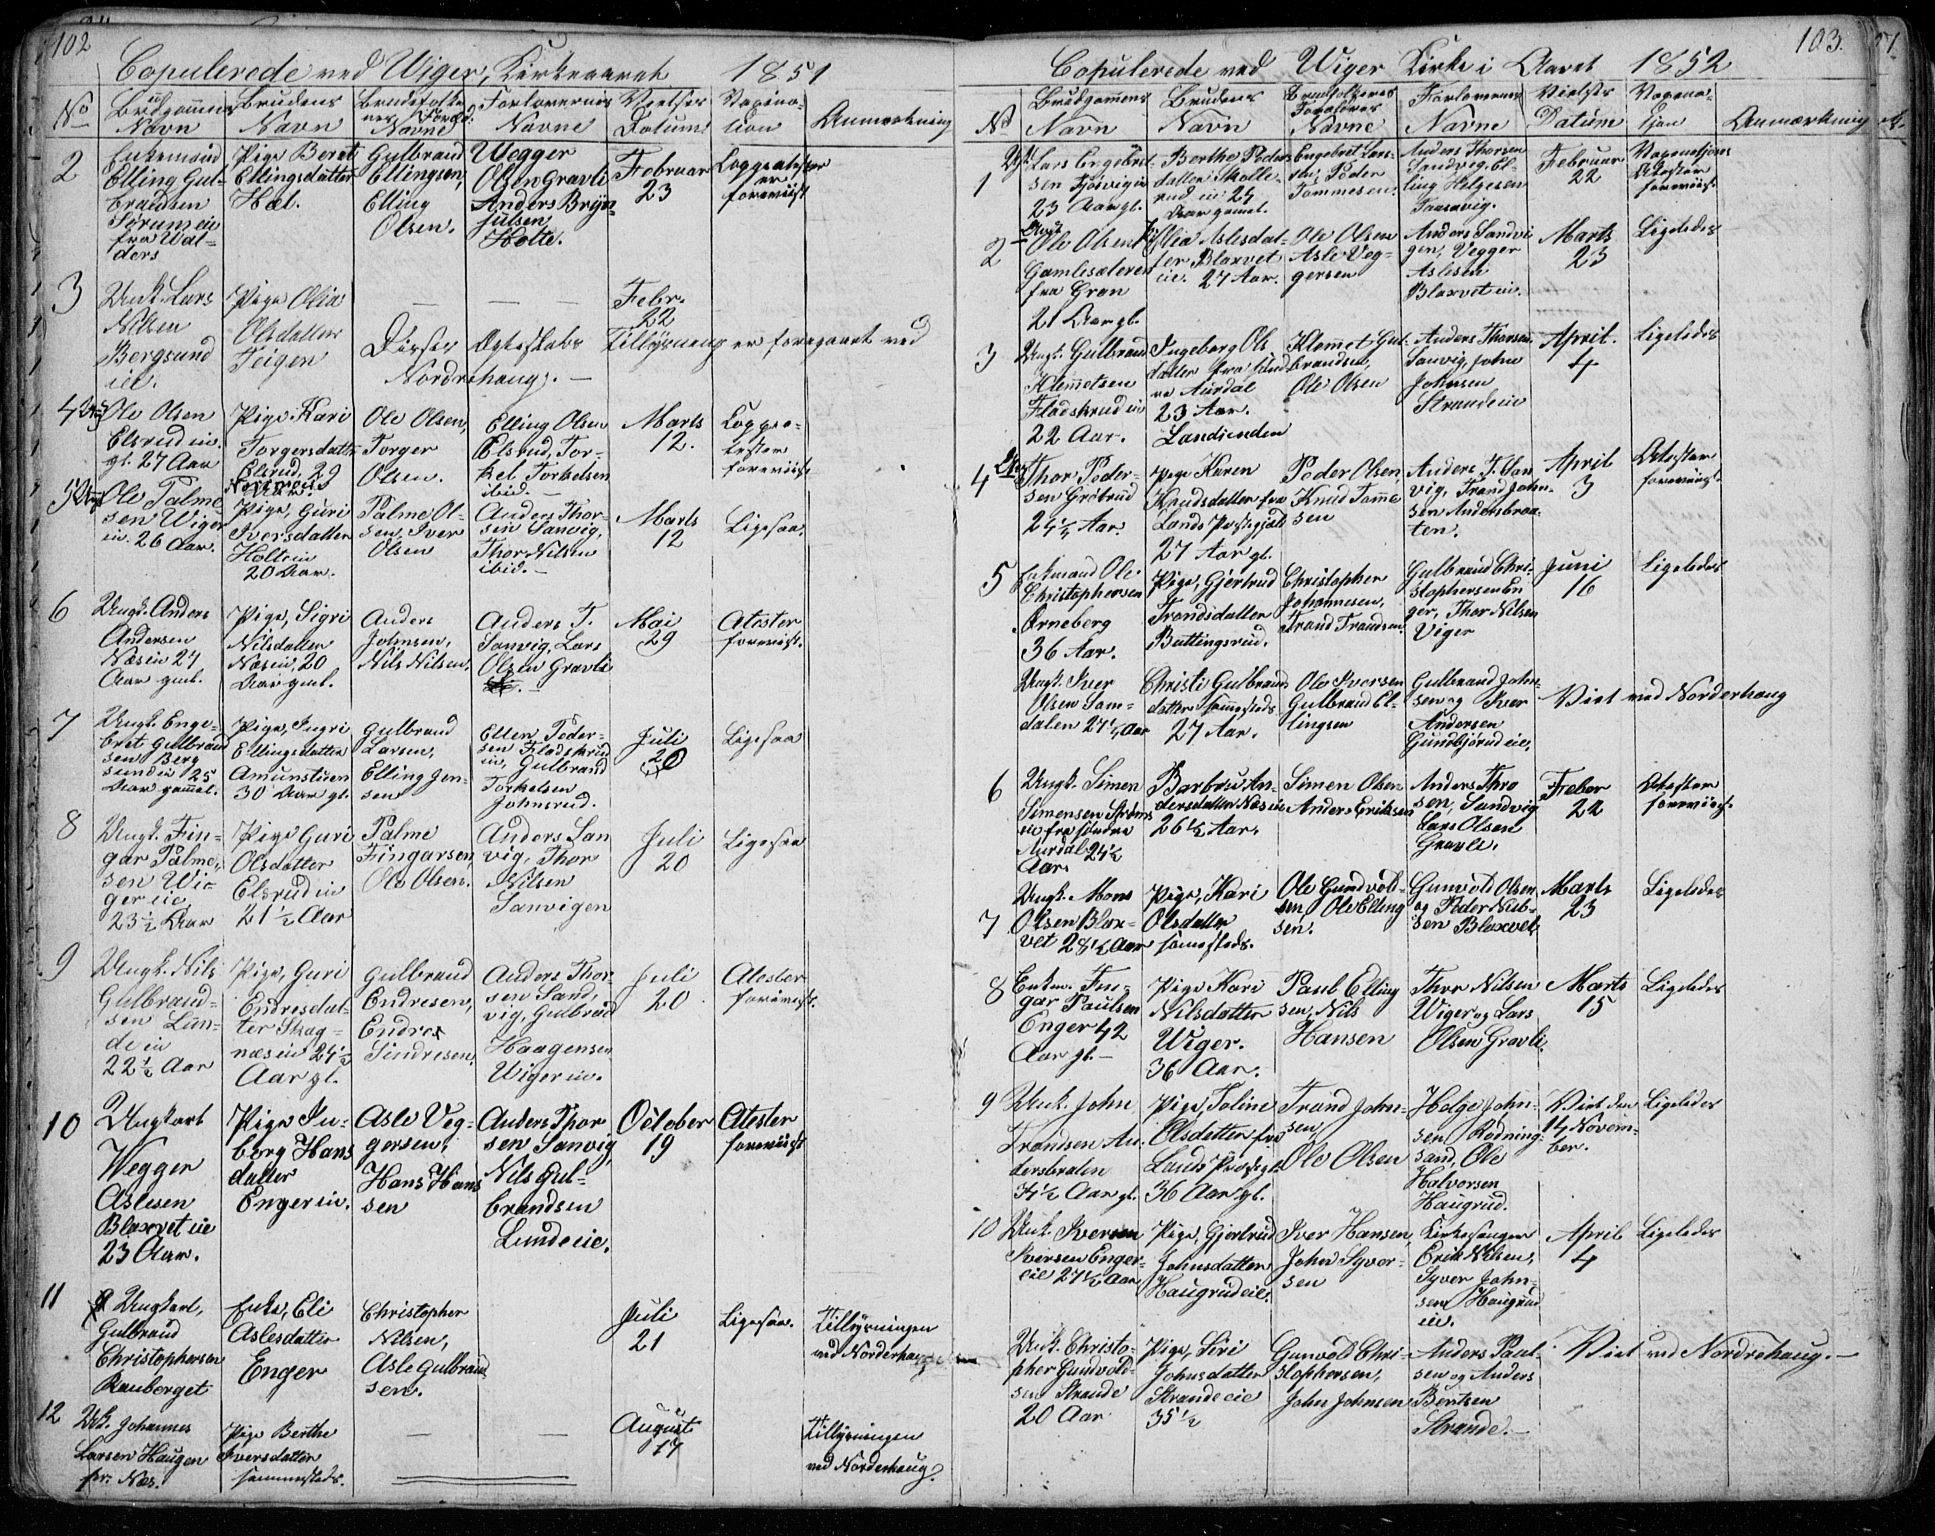 102
Copulerede ved Wiger Kirke aaret 1851
No
Brudgommens Navn
Brudens Navn
Brudefolkenes Foræld. Navne
Forlovernes Navne
Vielses Datum
Vaccination
Anmærkning
2
Enkemand
Elling Gul-
brandsen
Sørum eie
fra Val-
ders
Pige Beret
Ellingsdatter
Hol.
Gulbrand
Ellingsen,
Elling
Olsen.
Wegger
Olsen Gravli
Anders Bryn-
julsen
Holte.
Februar
23
Koppeatester
er
foreviist
3
Ungk. Lars
Nilsen
Bergsund
eie.
Pige Olia
Olsdatter
Teigen
Febr.
22
Disses Ægteskabs Tillysning er foregaaet ved
Nordrehaug. —
4
Ole Olsen
Elsrud eie.
gl. 27 Aar
Pige Kari
Torgersdatter
Elsrud, 29
Ole Olsen,
Torger
Olsen.
Elling Olsen
Elsrud, Tor-
kel Torkelsen
ibid. —
Marts
12.
Koppe-
tester
foreviist
5
Ole Palme-
sen Wiger
eie. 26 Aar.
Pige, Guri
Iversdatter
Holte eie
20 Aar.
Palme Ol-
sen, Iver
Olsen
Anders Thor-
sen Sanvig,
Thor Nilsen
ibid. —
Marts
12
Ligesaa.
6
Ungk. Anders
Andersen
Næs eie 27
Aar gml.
Pige, Sigri
Nilsdatter
Næs eie, 20
Aar gml.
Anders
Johnsen,
Nils Nilsen.
Anders T.
Sanvig, Lars
Olsen Gravli
Mai
29
Atester
foreviist.
7
Ungk. Enge-
bret Gulbrand
sen Berg
sund eie 25
Aar gammel.
Pige, Ingri
Ellingsdatter
Amunstuen
30 Aar gl.
Gulbrand
Larsen,
Elling Jen-
sen
Ellen Peder-
sen Fladskrud
eie, Gulbrand
Torkelsen
Johnsrud.
Juli
20
Ligesaa
8
Ungk. Fin-
gar Palme-
sen Wi-
ger eie
23½ Aar
Pige Guri
Olsdatter
Elsrud eie
21½ Aar
Palme
Fingarsen
Ole Olsen.
Anders San
vig, Thor
Nilsen
Sanvigen
Juli
20
Ligesaa
9
Ungk. Nils
Gulbrand-
sen Lun-
de eie
22½ Aar
Pige, Guri
Endresdat-
ter Skag-
næs eie 24½
Aar gl.
Gulbrand
Endresen,
Endre
Sindresen.
Anders Thor-
sen Sand-
vig, Gulbrand
Haagensen
Wiger eie.
Juli
20
Atester
foreviist.
10
Ungkarl
Wegger
Aslesen
Blaxvet eie
23 Aar.
Pige In-
borg Hans
datter
Enger eie.
Asle Veg-
gersen,
Hans Hans
sen
Anders Thor
sen Sanvig,
Nils Gul-
brandsen
Lunde eie.
October
19
Atester
foreviist
11
Ungkarl,
Gulbrand
Christophersen
Rauberget
Enke, Eli
Aslesdatter
Enger
Christopher
Nilsen,
Asle Gulbrand
sen.
Juli
21
Ligesaa.
Tillysningen
ved Norderhaug
12
Uk. Johannes
Larsen Haugen
fr. Næs.
Pige Berthe
Iversdatter
sammesteds.
August
17
Tillysningen
ved Norderhaug.
103.
Copulerede ved Wiger Kirke i Aaret 1852
No
Brudgommens Navn
Brudens Navn
Brudefolkenes Forældres Navne
Forlovernes Navne
Vielses Datum
Vaccina- tjon
Anmærkning
1
Lars Engebret-
sen Tjosvig eie
23 Aar gl.
Berthe Peders
datter Skolle-
rud eie 24
Aar gamel.
Engebret Lars-
sen, Peder
Tommesen.
Anders Thorsen
Sandvig, El-
ling Helgesen
Februar
22
Vaccinatjons
Atester
foreviist.
2
Ole Olsen
Gamlesæteren
fra Gran
21 Aar gl.
Olea Aslesdat-
ter Blaxvet
eie. 27 Aar.
Ole Olsen
Asle Veg-
gersen
Anders Sandvi
gen, Vegger
Aslesen
Blaxvet eie.
Marts
23
Ligeledes
3
Ungk. Gulbrand
Klemetsen
Fladskrud eie
22 Aar.
Ingeborg Ols
datter fra Sønd
re Aurdal
23 Aar.
Landsenden
Klemet Gul-
brandsen,
Ole Olsen
Anders Thorsen
Sanvig, John
Johnsen
Strande eie
April.
4
Ligeledes
4
Thor Peder-
sen Grøtrud
24½ Aar.
Pige Karen
Knudsdatter fra
Lands Præstegjeld
27 Aar gl.
Peder Olsen,
Knud Tomme
sen
Anders T. San-
vig, Trand John-
sen Andersbraa-
ten.
April
3
Atester
foreviist.
5
Enkemand Ole
Christophersen
Arneberg
36 Aar.
Pige, Gjertrud
Trandsdatter
Buttingsrud.
Christopher
Johannesen,
Trand Trandsen.
Gulbrand Chri-
stophersen En
ger, Thor Nilsen
Viger
Juni
16
Ligeledes
Ungk. Iver
Olsen Som-
dalen 27½ Aar
Christi Gulbrands
datter sammesteds
27 Aar.
Ole Iversen
Gulbrand El-
lingsen
Gulbrand John-
sen og Iver
Andersen
Gundbjørud eie.
Viet ved Norderhaug
6
Ungk. Simen
Simensen Strøms
eie fra Søndre
Aurdal 24½
Aar.
Barbro An-
dersdatter Næs eie
26½ Aar.
Simen Olsen
Anders Eriksen
Anders Thro
sen, Sandvig
Lars Olsen
Gravli.
Feber
22
Atester
foreviist.
7
Ungk. Mons
Olsen Blax-
vet 28½ Aar
Pige, Kari
Olsdatter
sammesteds.
Ole Gundvold-
sen, Ole Elling
sen.
Gunvold Olsen
og Peder Nub-
sen Blaxvet
Marts
23
Ligeledes
8
Enkm. Fin-
gar Paulsen
Enger 42
Aar gl. —
Pige Kari
Nilsdatter
Wiger.
36 Aar.
Paul Elling
sen, Nils
Hansen
Thor Nilsen
Wiger og Lars
Olsen Gravli.
Marts
15
Ligeledes
9
Unk. John
Trandsen An-
dersbraten
Aar gl.
Pige, Toline
Olsdatter fra
Lands Præstgl.
36 Aar gl.
Trand John-
sen,
Ole Olsen
Helge John-
sen Rødning-
sand, Ole
Halvorsen
Haugrud.
Viet den
14 Novem-
ber.
Ligeledes
10
Unk. Iver
Iversen Enger-
eie 27½ Aar
Pige, Gjertrud
Johnsdatter
Haugrud eie.
Iver Hansen,
John Syver-
sen
Kirkesanger
Erik Nilsen,
Syver John-
sen Haugrud
eie.
April
4
Ligeledes
Unk. Christo-
pher Gundvold-
sen Strande
20 Aar
Pige, Siri
Johnsdatter
Strande eie
35½
Gunvold Chri-
stophersen,
John Johnsen
Anders Paul-
sen og Anders
Bentsen
Strande. —
Viet ved Nordrehaug. —